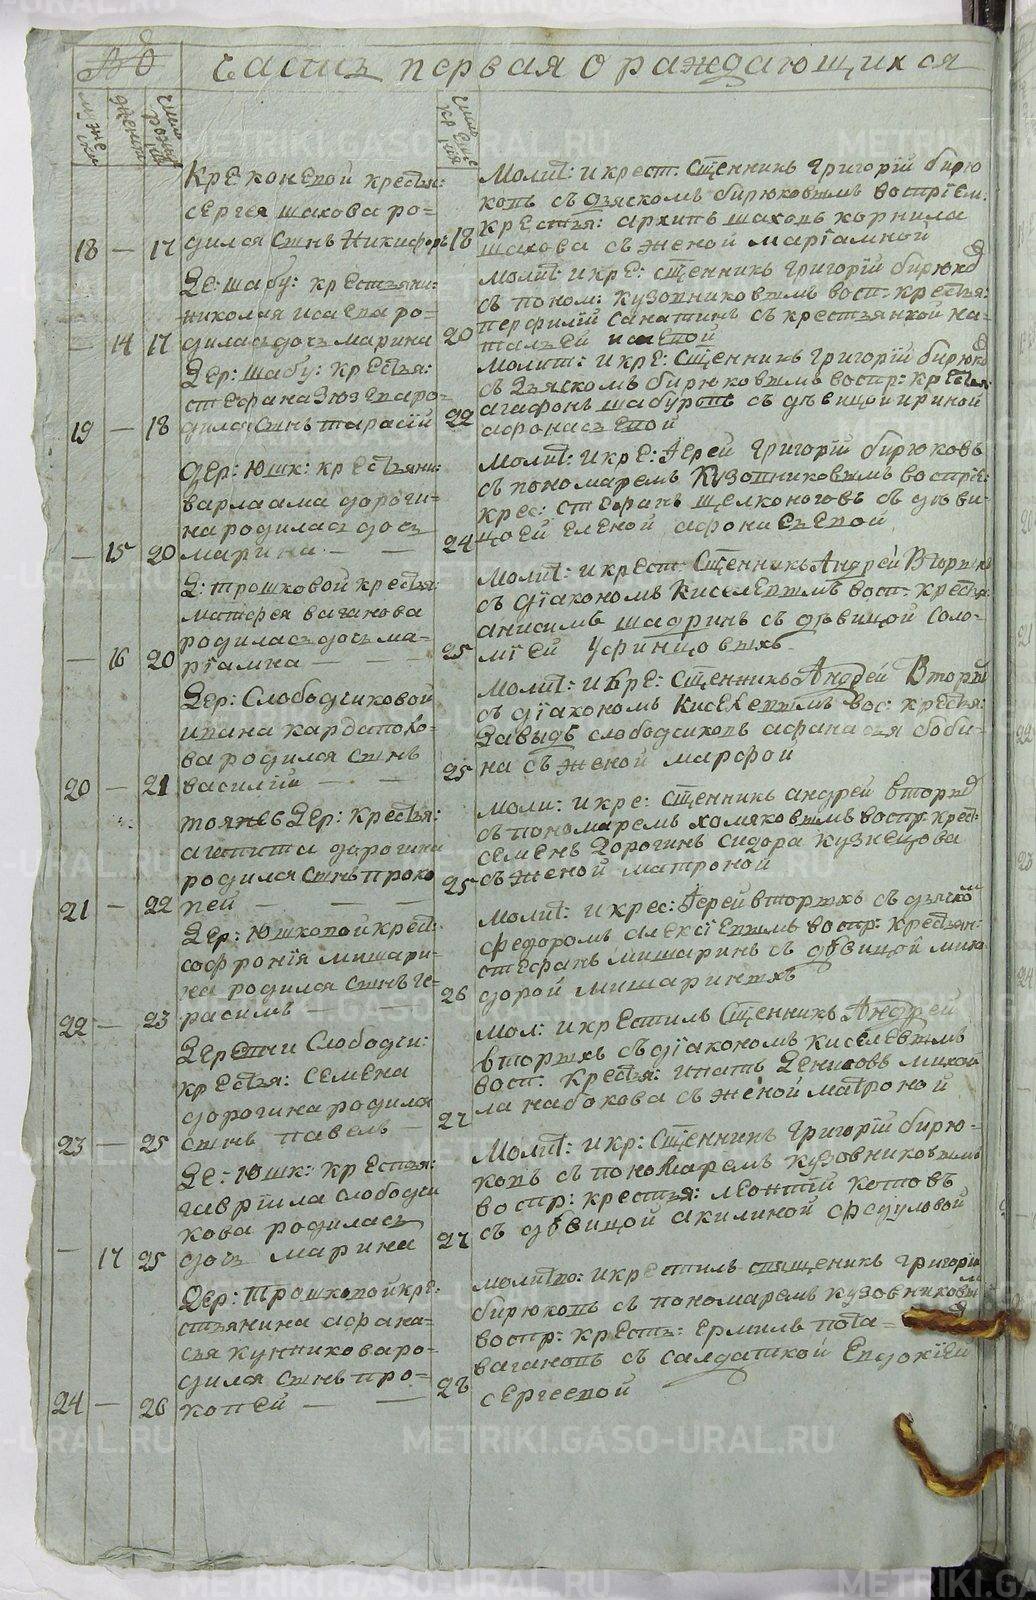 8
Часть первая о раждающихся
муже
женска
число рожде
число кре
Креконевой крестья:
сергея шахова ро-
18 — 17 дился сынъ Никифоръ
18 Молит: и крест: Сщенникъ Григорїй бирю
ковъ съ дьяскомъ бирюковымъ востріем:
крестья: архипъ шаховъ корнила
шахова съ женой марїамной
де: шабу: крестьяни:
николая исаева ро-
— 14 17 дилась дочь марина
20 молит: и кре: сщенникъ григорїй бирюко
съ поном: кузовниковымъ вост: крестья:
перфилїй санатинъ съ крестьянкой на-
тальей исаевой
дер: шабу: крестья:
стефана зюзева ро-
19 — 18 дился сынъ тарасїй
22 Молит: и кре: Сщенникъ григорїй бирюко
съ дьяскомъ бирюковымъ востр: крестья:
агафонъ шабуровъ съ дѣвицой ириной
афонасьевой
дер: юшк: крестьяни:
варлаама дороги-
на родилась дочь
— 15 20 марина — —
24 молит: и кре: Іерей григорїй бирюковъ
съ пономаремъ Кузовниковымъ востріе:
крес: стефанъ щелконоговъ съ дѣви-
цой еленой афонасьевой
д: трошковой крестья:
матфея ваганова
родилась дочь ма-
— 16 20 рїамна — —
25 Молит: и крест: Сщенникъ Андрей Вторы
съ дїакономъ Киселевымъ вост: крестья:
анисимъ шадринъ съ дѣвицой соло-
мїей Усринцовыхъ
дер: Слободчиковой
ивана кардапо
ва родился сынъ
20 — 21 василїй — —
25 Молит: и кре: Сщенникъ Андрей Вторы
съ дїакономъ Киселевымъ вос: крестья:
давыдъ слободсковъ афанасья боби-
на съ женой марфой
тоянев дер: крестья:
агапита дорогина
родился сынъ проко
21 — 22 пей — — —
25 моли: и кре: сщенникъ андрей вторы
съ пономаремъ хомяковымъ востр: крест:
семенъ дорогинъ сидора кузнецова
съ женой матроной
дер: юшковой крест:
софронїя мишари-
на родился сынъ ге-
22 — 23 расимъ — —
26 молит: и крес: Іерей вторыхъ съ дьяско
федоромъ алексїевымъ востр: крестьян:
стефанъ мишаринъ съ дѣвицой мино
дорой мишариныхъ
деревни Слободчи:
крестья: семена
дорогина родился
23 — 25 сынъ павелъ —
27 мол: и крестилъ Сщенникъ Андрей
вторыхъ съ дїакономъ киселевымъ
вост: крестья: ипатъ денисовъ михай
ла набокова съ женой матроной
де: юшк: крестья:
гаврїила слободчи
кова родилась
— 17 25 дочь марина
27 молит: и кр: Сщенникъ григорїй бирю-
ковъ съ пономаремъ кузовниковымъ
востр: крестья: леонтїй котовъ
съ дѣвицой акилиной федуловой
дер: трошковой кре-
стьянина афана-
сья кунниковаро-
дился сынъ про-
24 — 26 копей — —
28 молитво: и крестилъ священикъ григорїй
бирюковъ съ пономаремъ кузовниковы
востр: крестъ: ермилъ пота-
вагановъ съ салдаткой Евдокїей
сергеевой